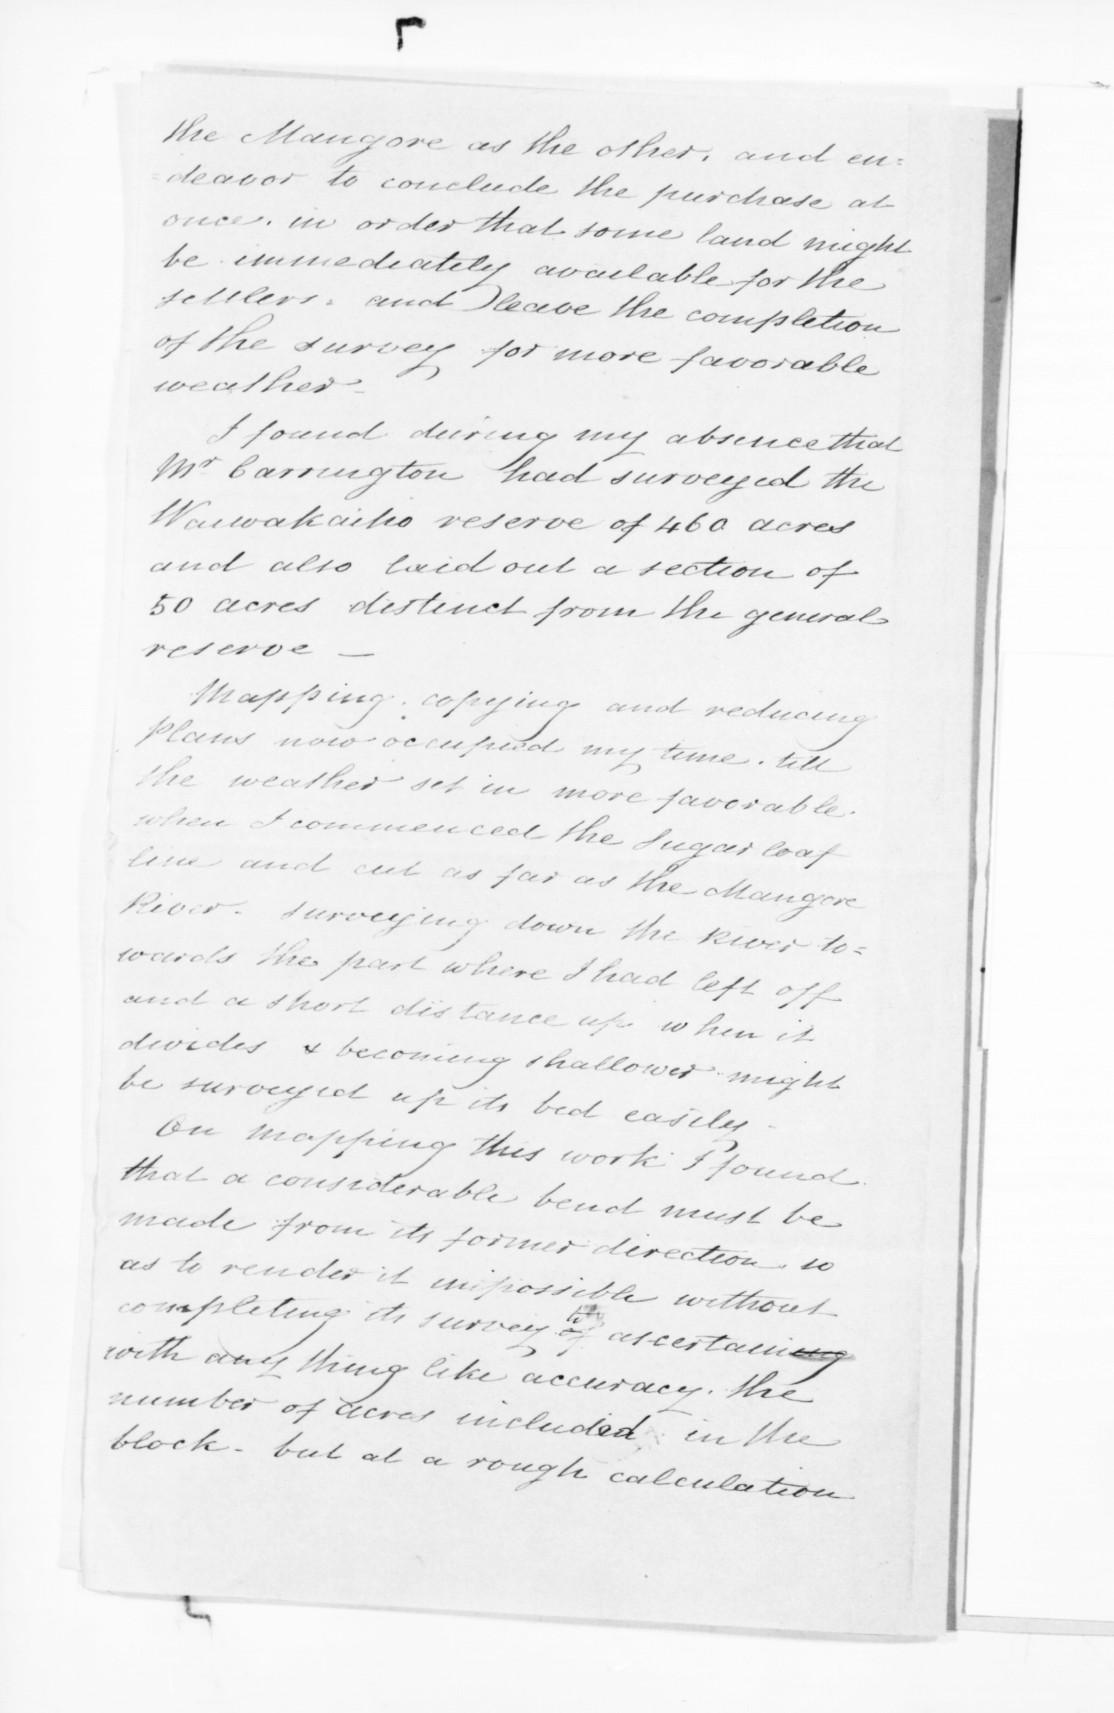 the Mangore as the other, and en=
=deavor to conclude the purchase at
once. in order that some land might
be immediately available for the
settlers. and leave the completion
of the survey for more favorable
weather -
I found during my absence that
Mr Carrington had surveyed the
Waiwakaiho reserve of 460 acres
and also laid out a section of
50 acres distinct from the general
reserve —
Mapping, copying and reducing
Plans now occupied my time. till
the weather set in more favorable.
when I commenced the Sugar loaf
line and cut as far as the Mangore
River. surveying down the River to=
wards the part where I had left off
and a short distance up when it
divides & becoming shallower might
be surveyed up its bed easily -
On mapping this work I found
that a considerable bend must be
made from its former direction so
as to render it impossible without
completing its survey of to ascertaining
with any thing like accuracy. the
number of acres included in the
block - but at a rough calculation